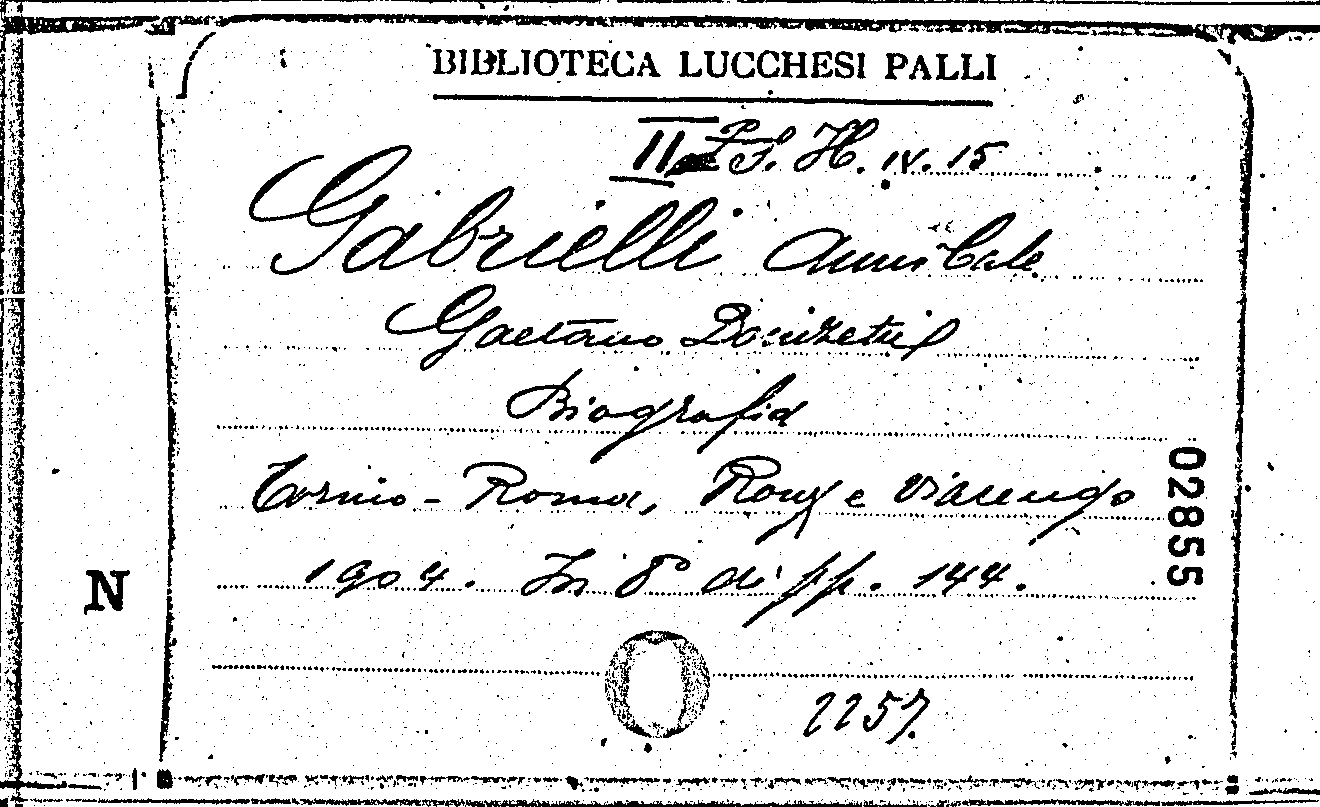 BIBLIOTECA LUCCHESI PALLI
II P.S. H. IV. 15
Gabrielli Annibale
Gaetano Donizetti
Biografia
Torino - Roma, Roux e Viarengo
1904. In 8° di pp. 144.
02855
N
2257.